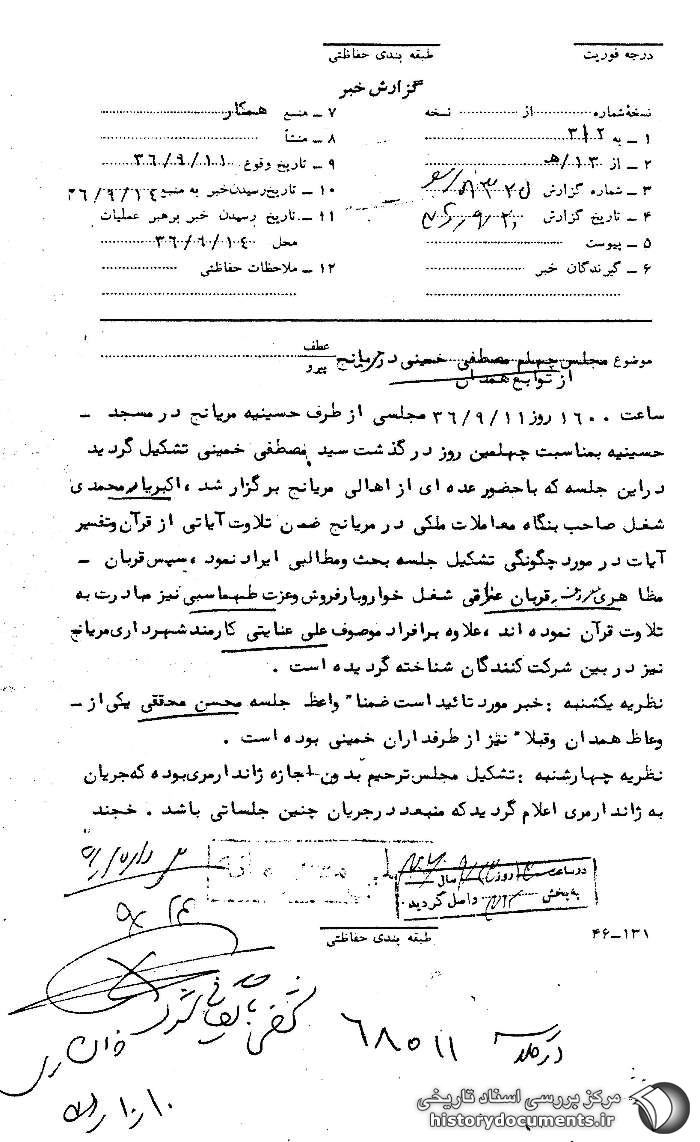 درجه فوریت
طبقه بندی حفاظتی
گزارش خبر
نسخهٔ شماره از نسخه
۱ ــ به ۳۱۲
۲ ــ از ۱۳/هـ
۳ ــ شماره گزارش
۴ ــ تاریخ گزارش
۵ ــ پیوست
۶ ــ گیرندگان خبر
۷ ــ منبع همکار
۸ ــ منشأ
۹ ــ تاریخ وقوع ۳۶/۹/۱۱
۱۰ ــ تاریخ رسیدن خبر به منبع ۳۶/۹/۱٤
۱۱ ــ تاریخ رسیدن خبر برهبر عملیات
محل ۳۶/۹/۱٤
۱۲ ــ ملاحظات حفاظتی
موضوع مجلس چهلم مصطفی خمینی در مریانج
از توابع همدان
عطف
پیرو
ساعت ۱۶۰۰ روز ۳۶/۹/۱۱ مجلسی از طرف حسینیه مریانج در مسجد ــ
حسینیه بمناسبت چهلمین روز درگذشت سید مصطفی خمینی تشکیل گردید
دراین جلسه که باحضور عده ای از اهالی مریانج برگزار شد ، اکبریار محمدی
شغل صاحب بنگاه معاملات ملکی در مریانج ضمن تلاوت آیاتی از قرآن وتفسیر
آیات در مورد چگونگی تشکیل جلسه بحث ومطالبی ایراد نمود ، سپس قربان ــ
مظاهری معروف به قربان عراقی شغل خواروبار فروش وعزت طهماسبی نیز مبادرت به
تلاوت قرآن نموده اند ، علاوه برافراد موصوف علی عنایتی کارمند شهرداری مریانج
نیز در بین شرکت کنندگان شناخته گردیده است .
نظریه یکشنبه : خبر مورد تائید است ضمنا" واعظ جلسه محسن محققی یکی از ــ
وعاظ همدان وقبلا" نیز از طرفداران خمینی بوده است .
نظریه چهارشنبه : تشکیل مجلس ترحیم بدون اجازه ژاندارمری بوده که جریان
به ژاندارمری اعلام گردید که منبعد درجریان چنین جلساتی باشد . خجند
در ساعت روز سال
به بخش واصل گردید
طبقه بندی حفاظتی
۴۶ــ۱۳۱
۶۸۵۱۱
مرکز بررسی اسناد تاریخی
historydocuments.ir